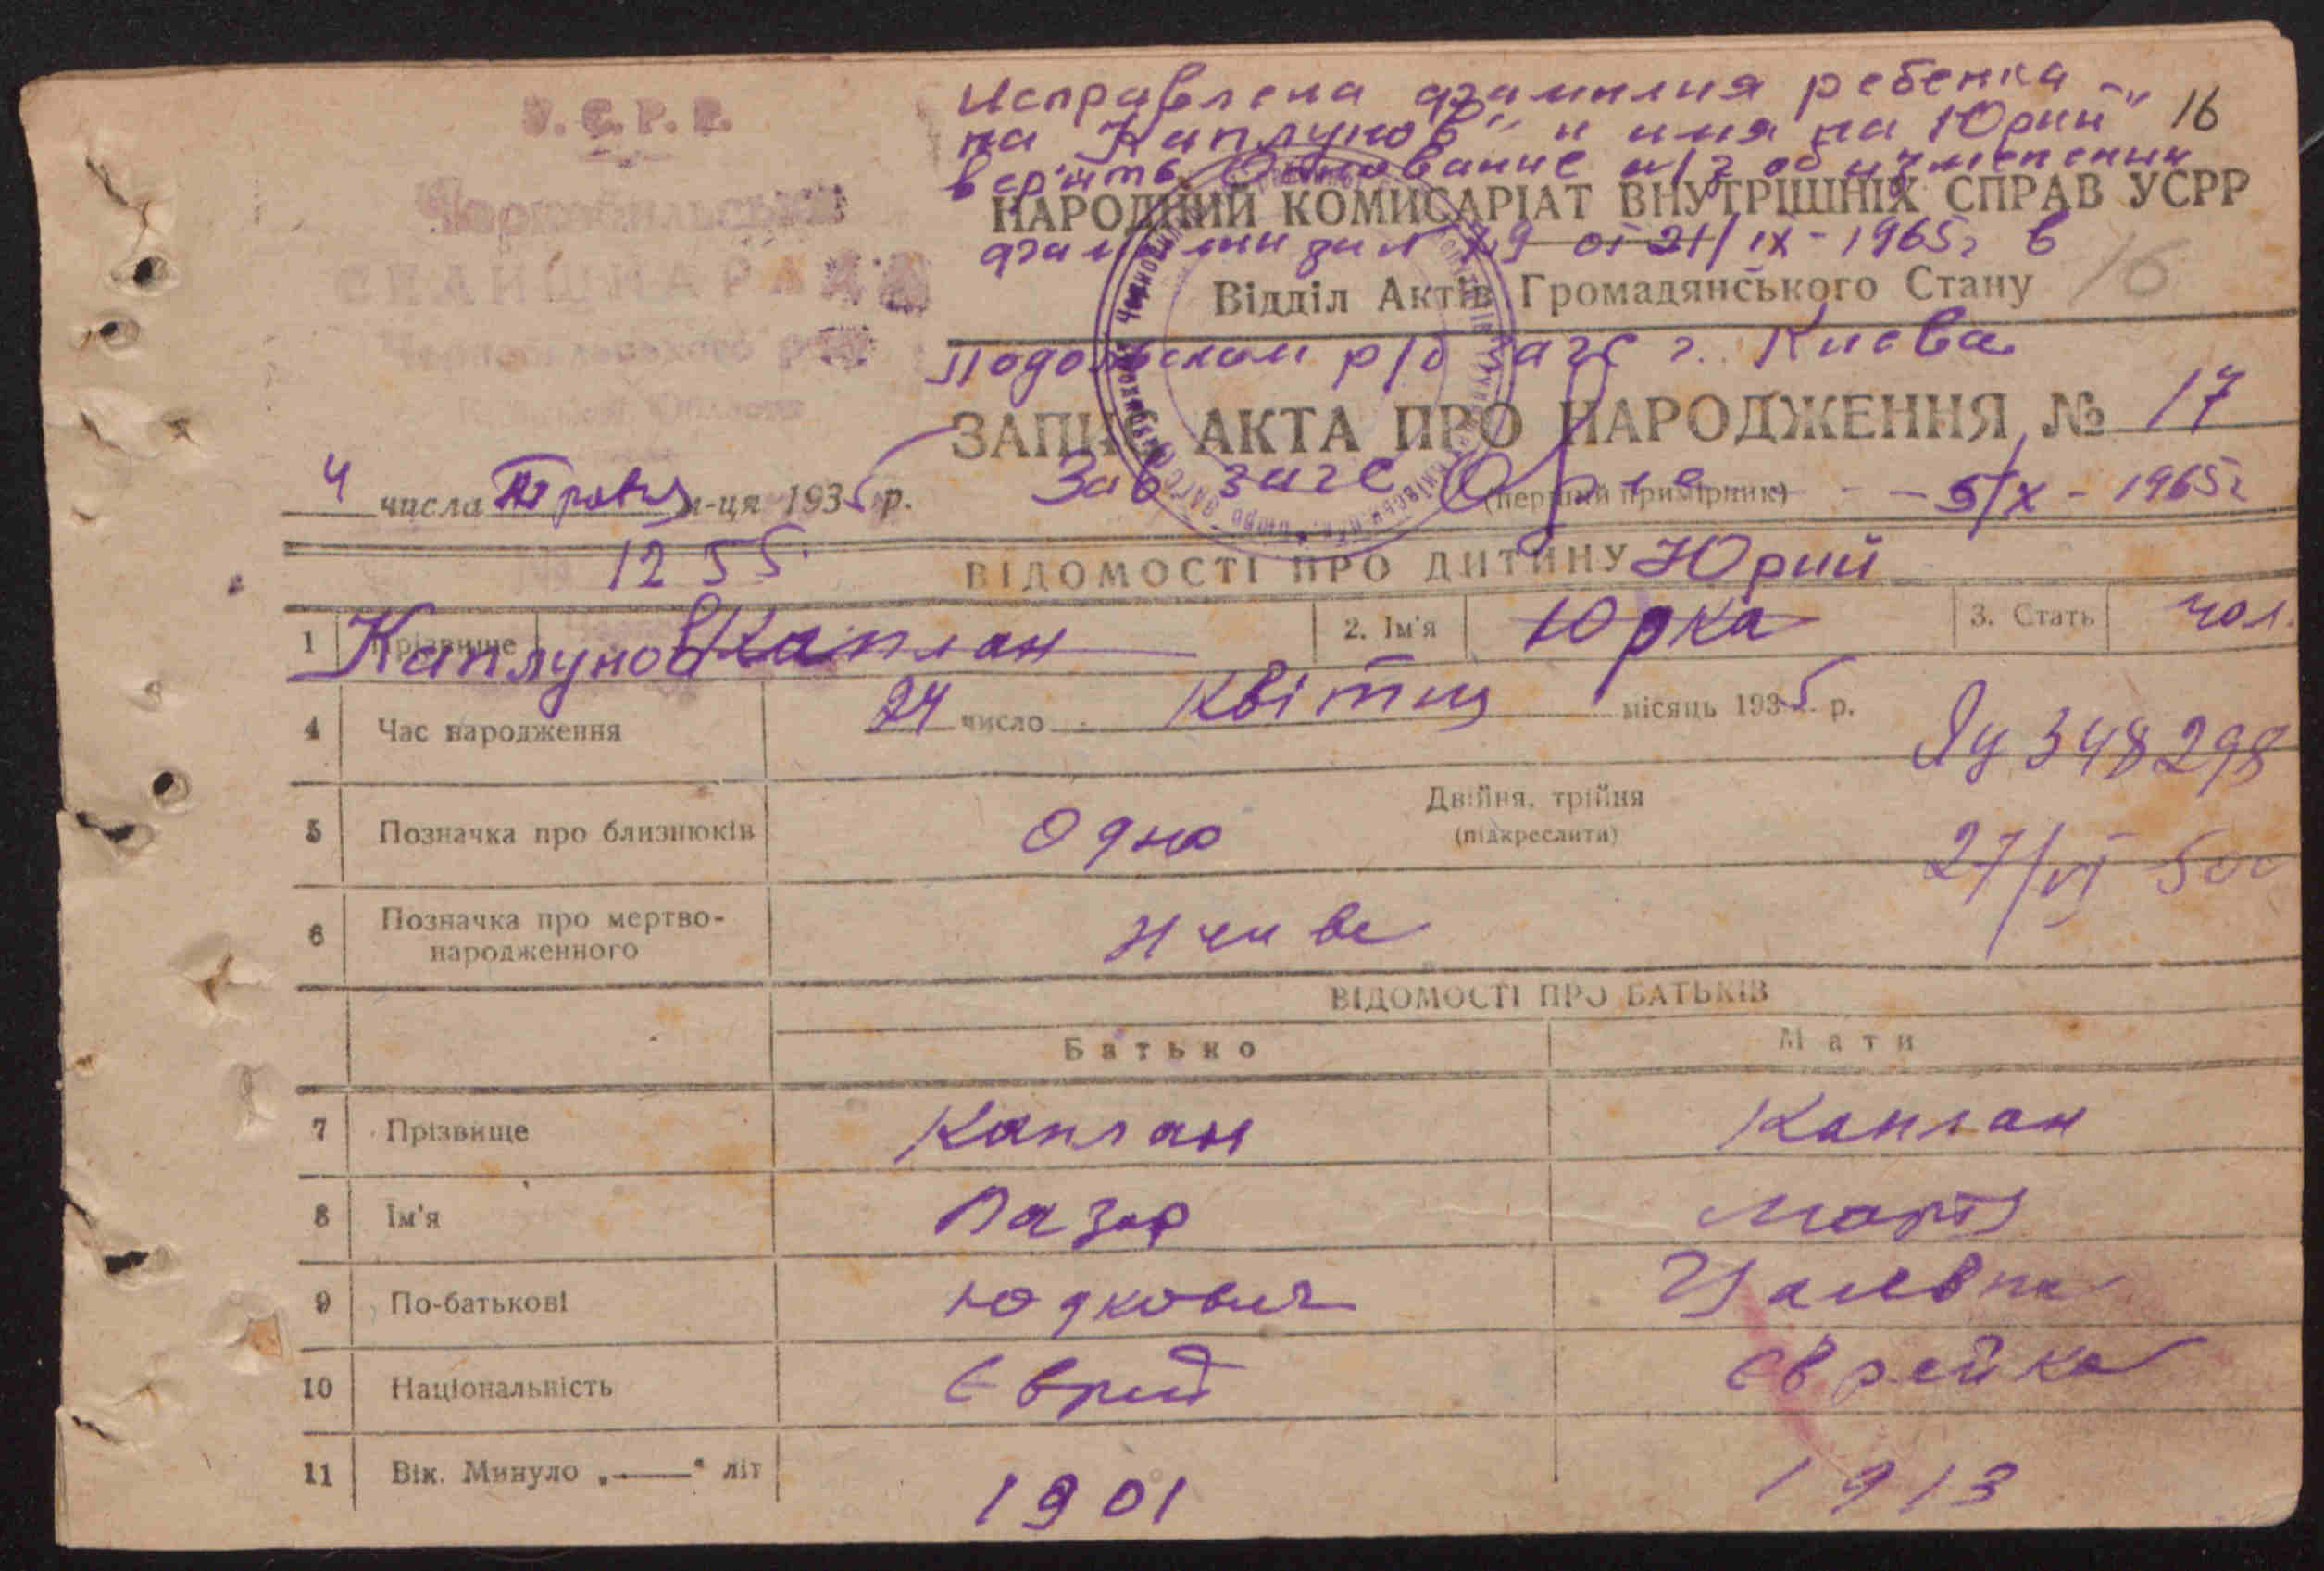 У.С.Р.Р.
Исправлена фамилия ребенка -
на "Каплунов" и имя на "Юрий" 16
верить. Основание н/з об изменении
НАРОДНИЙ КОМИСАРІАТ ВНУТРІШНІХ СПРАВ УСРР
фамилии за № 19 от 21/IX - 1965г в
Відділ Актів Громадянського Стану 16
Подольском р/б загс г. Киева
ЗАПИС АКТА ПРО НАРОДЖЕННЯ № 17
4 числа Травня м-ця 1935 р.
Зав загс (перший примірник) - - 5/X - 1965г
1255
ВІДОМОСТІ ПРО ДИТИНУ Юрий
1 Прізвище Каплунов Каплан 2. Ім'я Юрка 3. Стать чол.
4 Час народження 24 число Квітня місяць 1935 р.
348298
5 Позначка про близнюків Одно Двійня, трійня
(підкреслити)
27/VI 50
6 Позначка про мертво-
народженного живе
ВІДОМОСТІ ПРО БАТЬКІВ
Батько Мати
7 Прізвище Каплан Каплан
8 Ім'я Лазар
9 По-батькові Юдкович
10 Національність Єврей Єврейка
11 Вік. Минуло „——“ літ 1901 1913